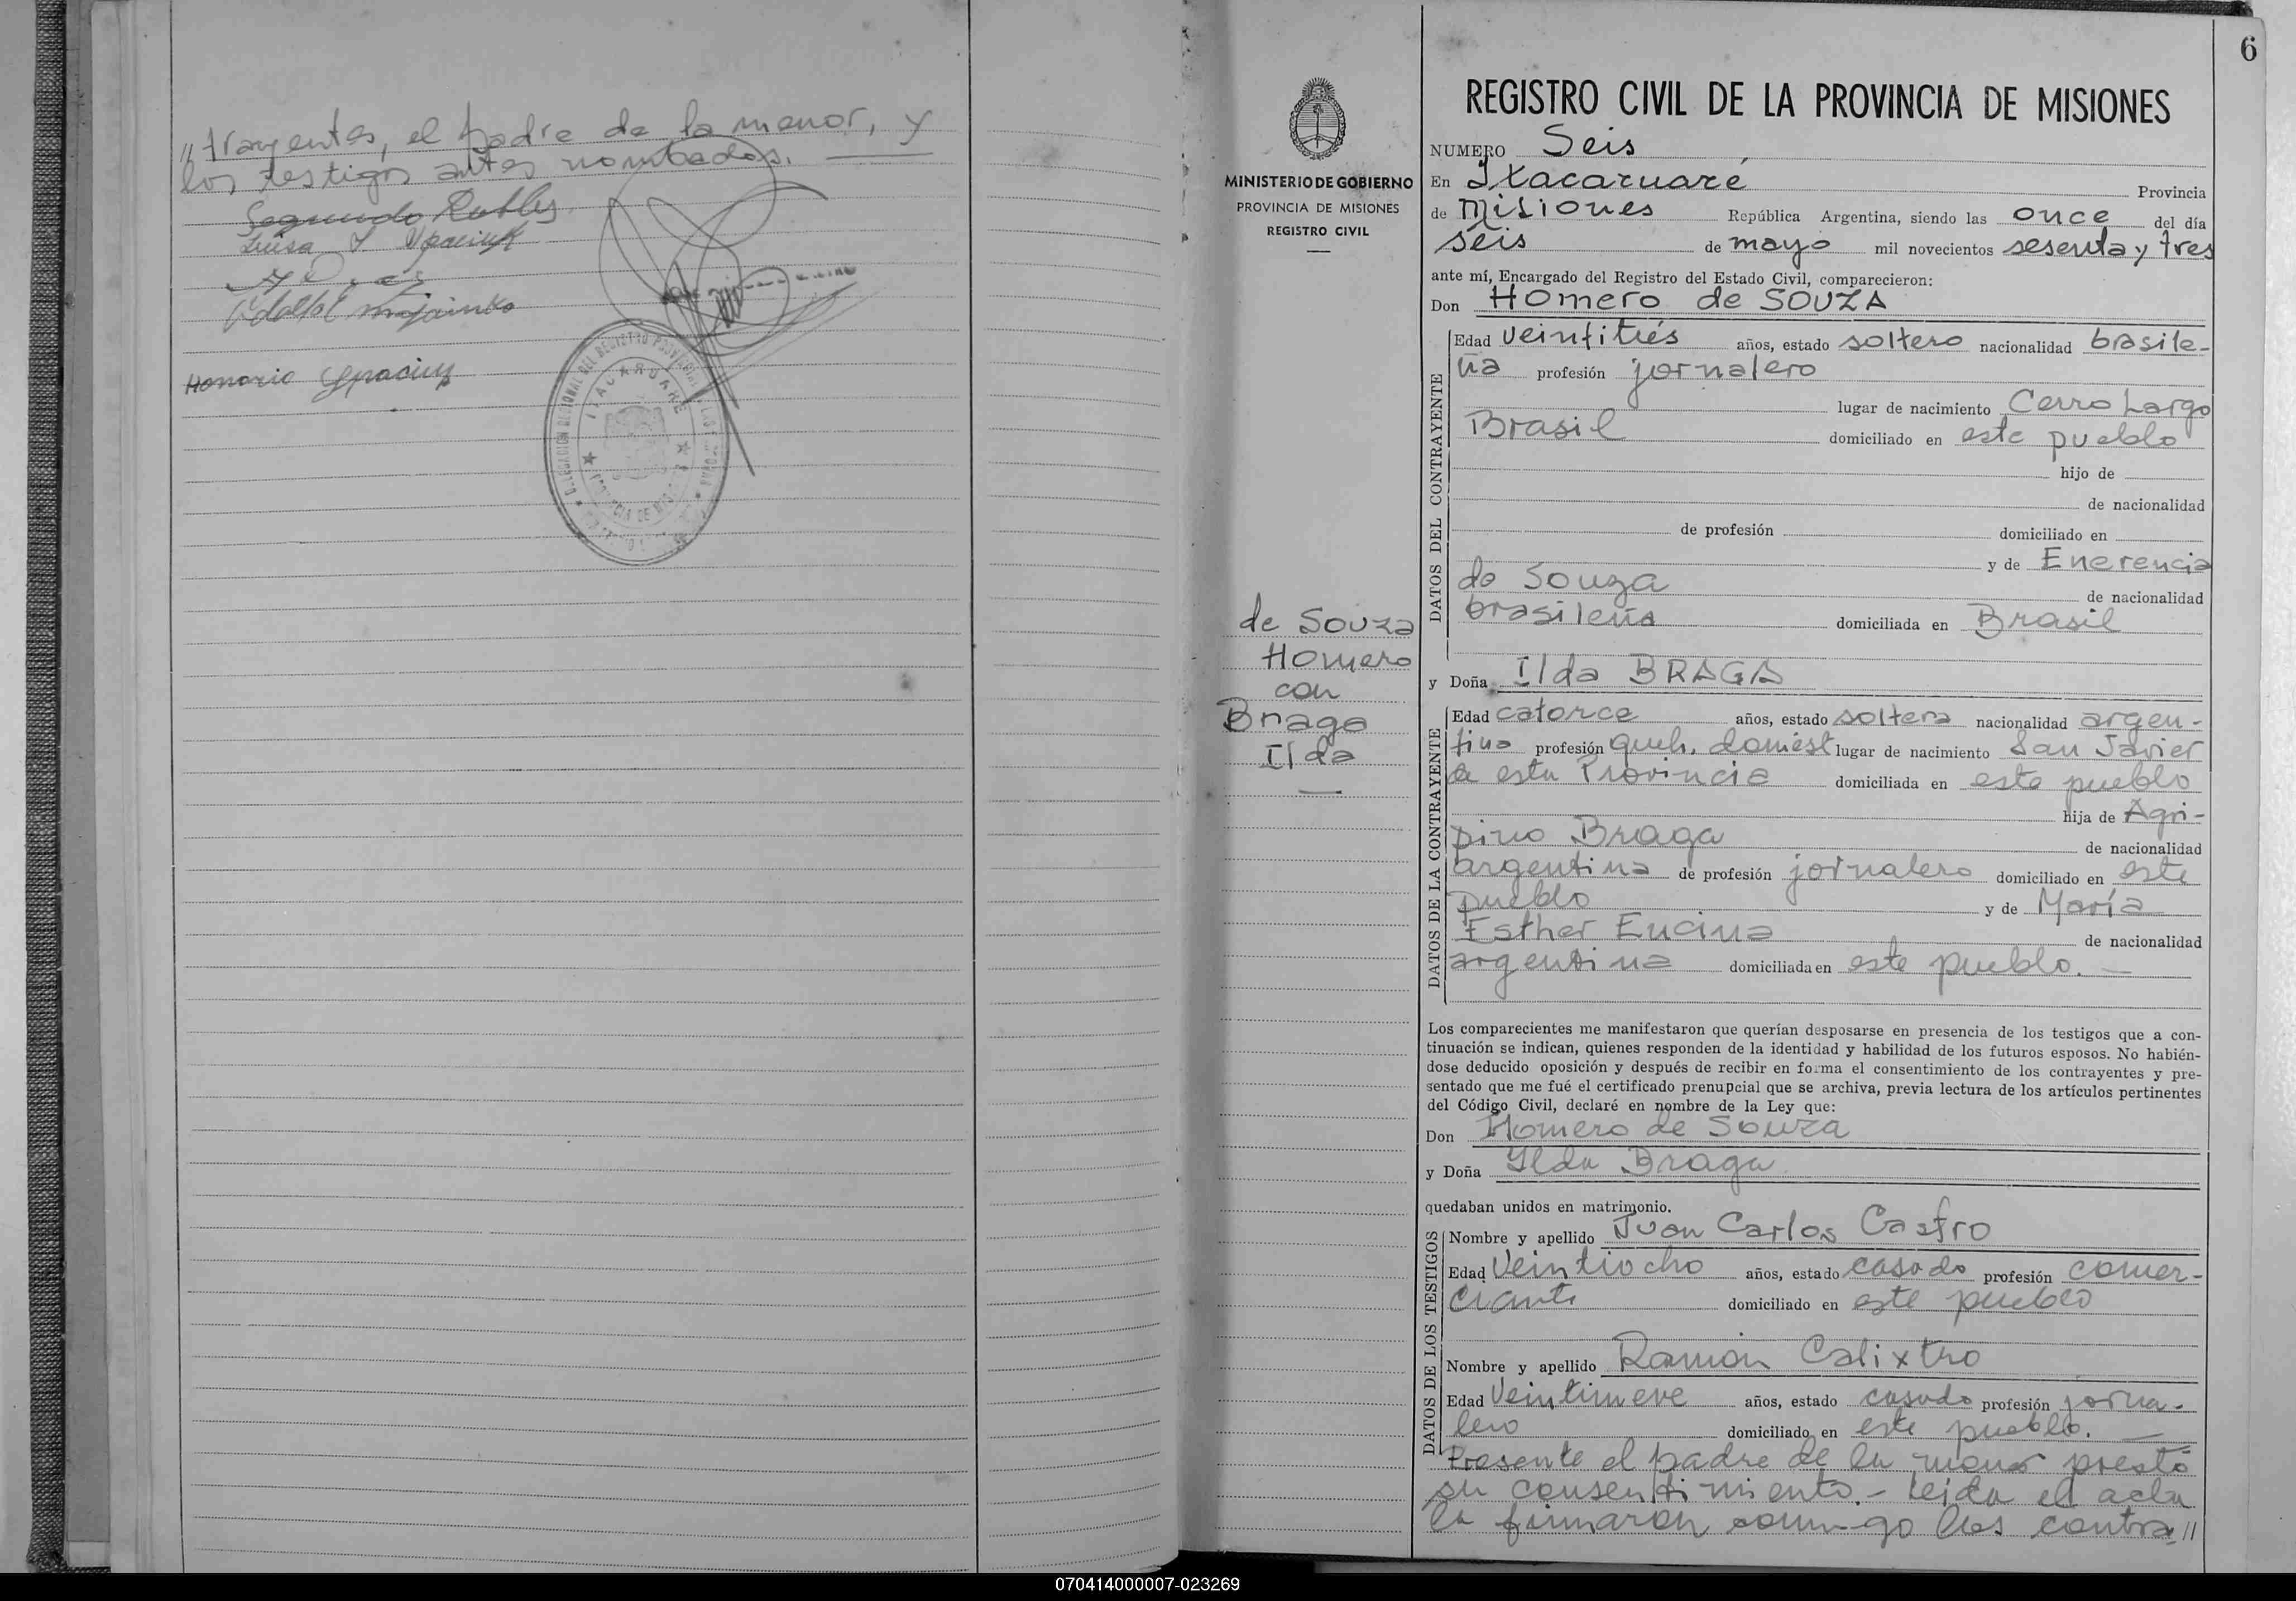 " trayentes, el padre de la menor, y
los testigos antes nombados.
Segundo Robles
Luisa
Honorio
ITACARUARE
6
MINISTERIO DE GOBIERNO
PROVINCIA DE MISIONES
REGISTRO CIVIL
de Souza
Homero
con
Braga
Ilda
REGISTRO CIVIL DE LA PROVINCIA DE MISIONES
NUMERO Seis
En Itacaruaré Provincia
de Misiones República Argentina, siendo las once del día
séis de mayo mil novecientos sesenta y tres
ante mí, Encargado del Registro del Estado Civil, comparecieron:
Don Homero de SOUZA
DATOS DEL CONTRAYENTE
Edad veintitrés años, estado soltero nacionalidad brasile-
ña profesión jornalero
lugar de nacimiento Cerro Largo
Brasil domiciliado en este pueblo
hijo de
de nacionalidad
de profesión domiciliado en
y de Enerencia
de Souza de nacionalidad
brasileña domiciliada en Brasil
y Doña Ilda BRAGA
DATOS DE LA CONTRAYENTE
Edad catorce años, estado soltera nacionalidad argen-
tina profesión queh. domést lugar de nacimiento San Javier
de esta Provincia domiciliada en este pueblo
hija de Agri-
pino Braga de nacionalidad
argentina de profesión jornalero domiciliado en este
pueblo y de María
Esther Encina de nacionalidad
argentina domiciliada en este pueblo. —
Los comparecientes me manifestaron que querían desposarse en presencia de los testigos que a con-
tinuación se indican, quienes responden de la identidad y habilidad de los futuros esposos. No habién-
dose deducido oposición y después de recibir en forma el consentimiento de los contrayentes y pre-
sentado que me fué el certificado prenupcial que se archiva, previa lectura de los artículos pertinentes
del Código Civil, declaré en nombre de la Ley que:
Don Homero de Souza
y Doña Ilda Braga
quedaban unidos en matrimonio.
DATOS DE LOS TESTIGOS
Nombre y apellido Juan Carlos Castro
Edad Veintiocho años, estado casado profesión comer-
ciante domiciliado en este pueblo
Nombre y apellido Ramón Calixtro
Edad Veintinueve años, estado casado profesión jorna-
lero domiciliado en este pueblo. —
Presente el padre de la menor prestó
su consentimiento.- Leída el acta
la firmaron conmigo los contra"
070414000007-023269